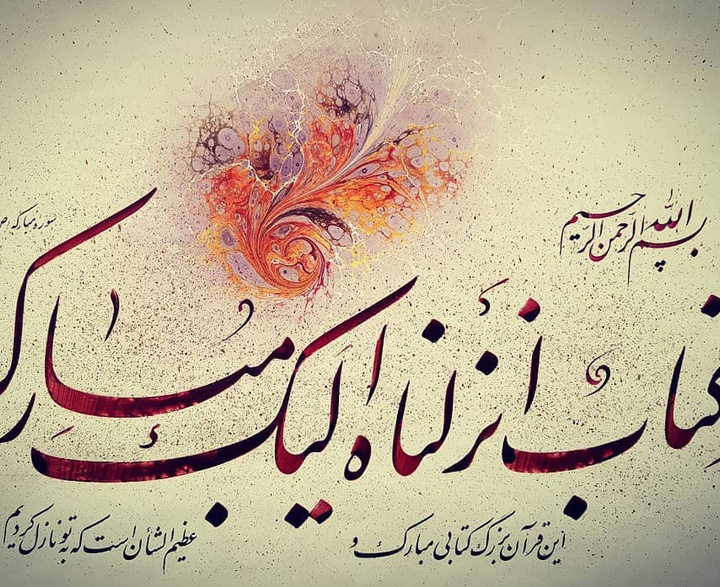 بسم الله الرّحمن الرّحیم
سوره مبارکه ص
کتاب انزلناه الیک مبارک
این قرآن بزرگ کتابی مبارک و عظیم الشأن است که به تو نازل کردیم